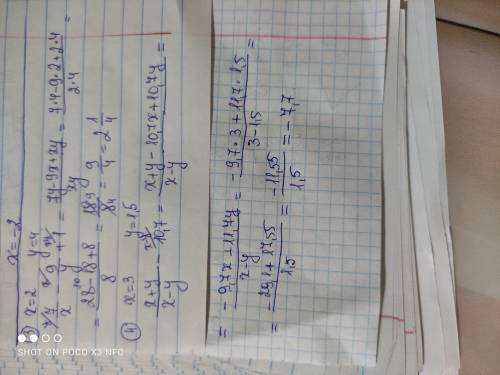 x = -2
3) x=2 y=4
7/x - 9/y + 1 = (7y-9x+xy)/xy = (7·4-9·2+2·4)/(2·4) =
= (28-18+8)/8 = 18/8 = 9/4 = 2 1/4
4) x=3 y=1,5
(x+y)/(x-y) - 10,7 = (x+y-10,7x+10,7y)/(x-y) =
= (-9,7x+11,7y)/(x-y) = (-9,7·3+11,7·1,5)/(3-1,5) =
= (-29,1+17,55)/1,5 = -11,55/1,5 = -7,7
SHOT ON POCO X3 NFC